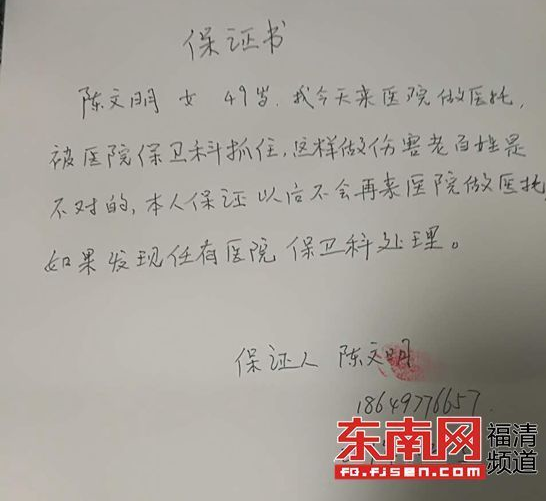 保证书
陈文明 女 49岁，我今天来医院做医托，
被医院保卫科抓住，这样做伤害老百姓是
不对的，本人保证以后不会再来医院做医托，
如果发现任有医院保卫科处理。
保证人 陈文明
18649776657.
东南网 福清频道
FQ.FJSEN.COM